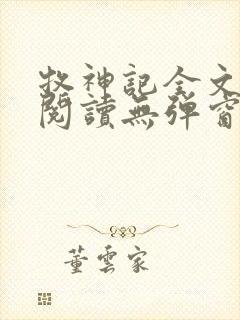 牧神記全文
閱讀無彈窗
董雲家